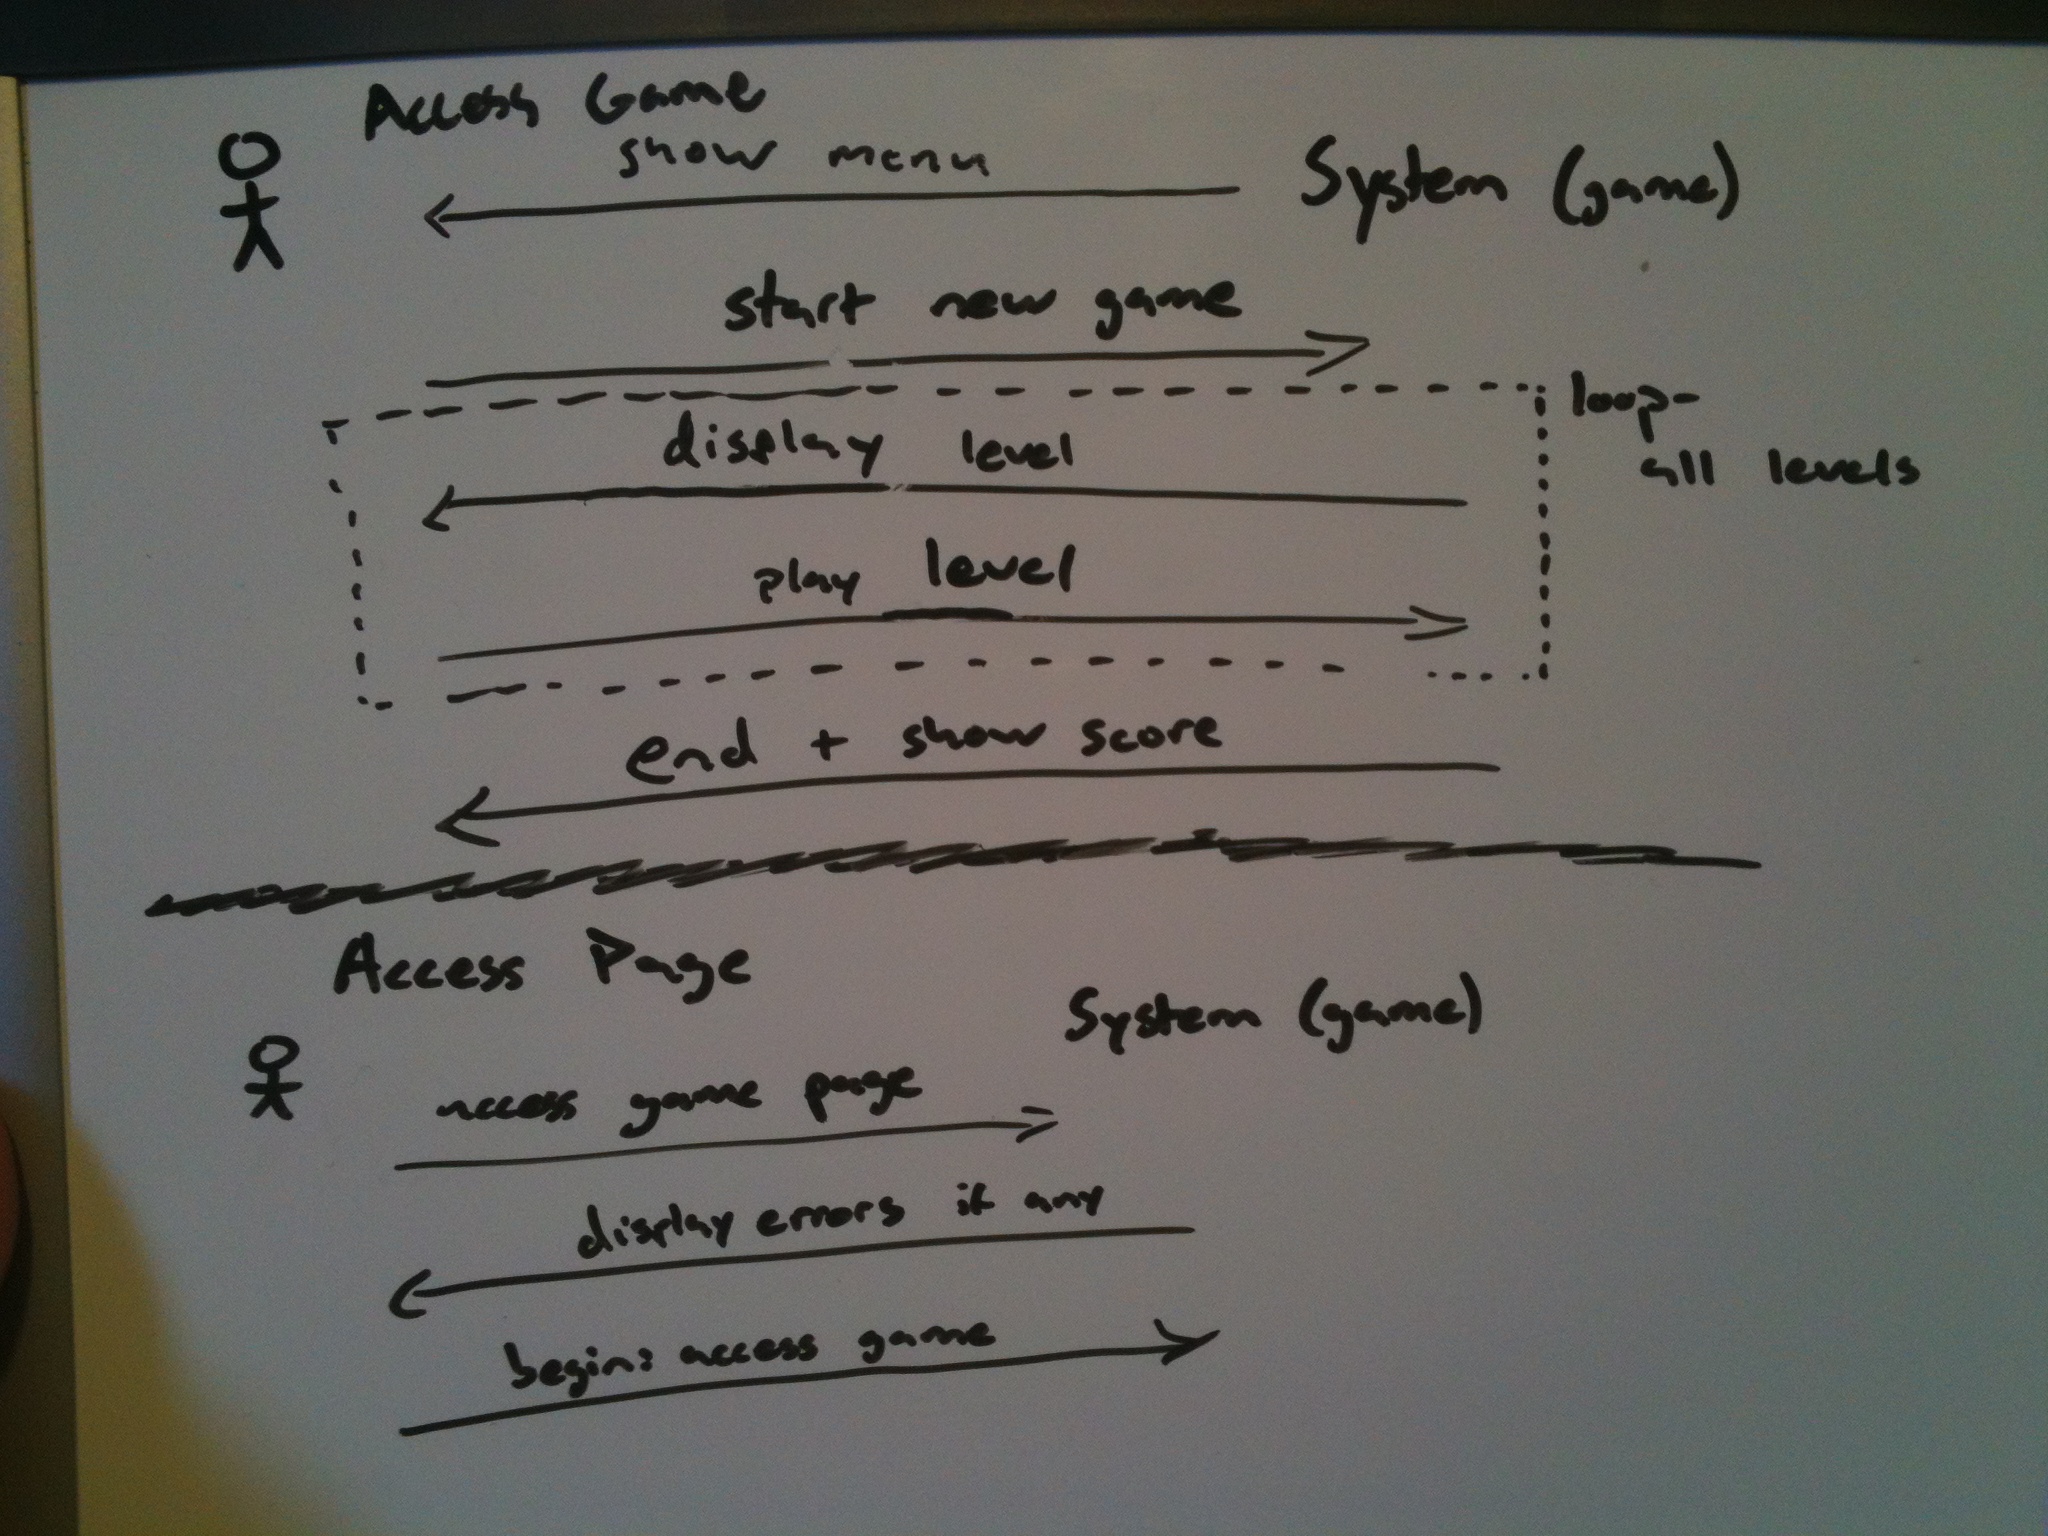 Access Game
show menu
System (game)
start new game
loop-
all levels
display level
play level
end + show score
Access Page
System (game)
access game page
display errors if any
begin: access game